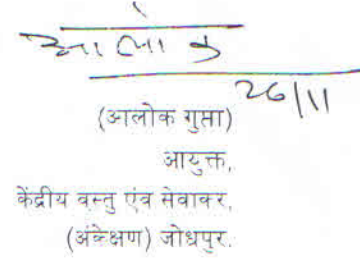 आलोक
26/11
(आलोक गुप्ता)
आयुक्त,
केंद्रीय वस्तु एंव सेवाकर,
(अंकेक्षण) जोधपुर.